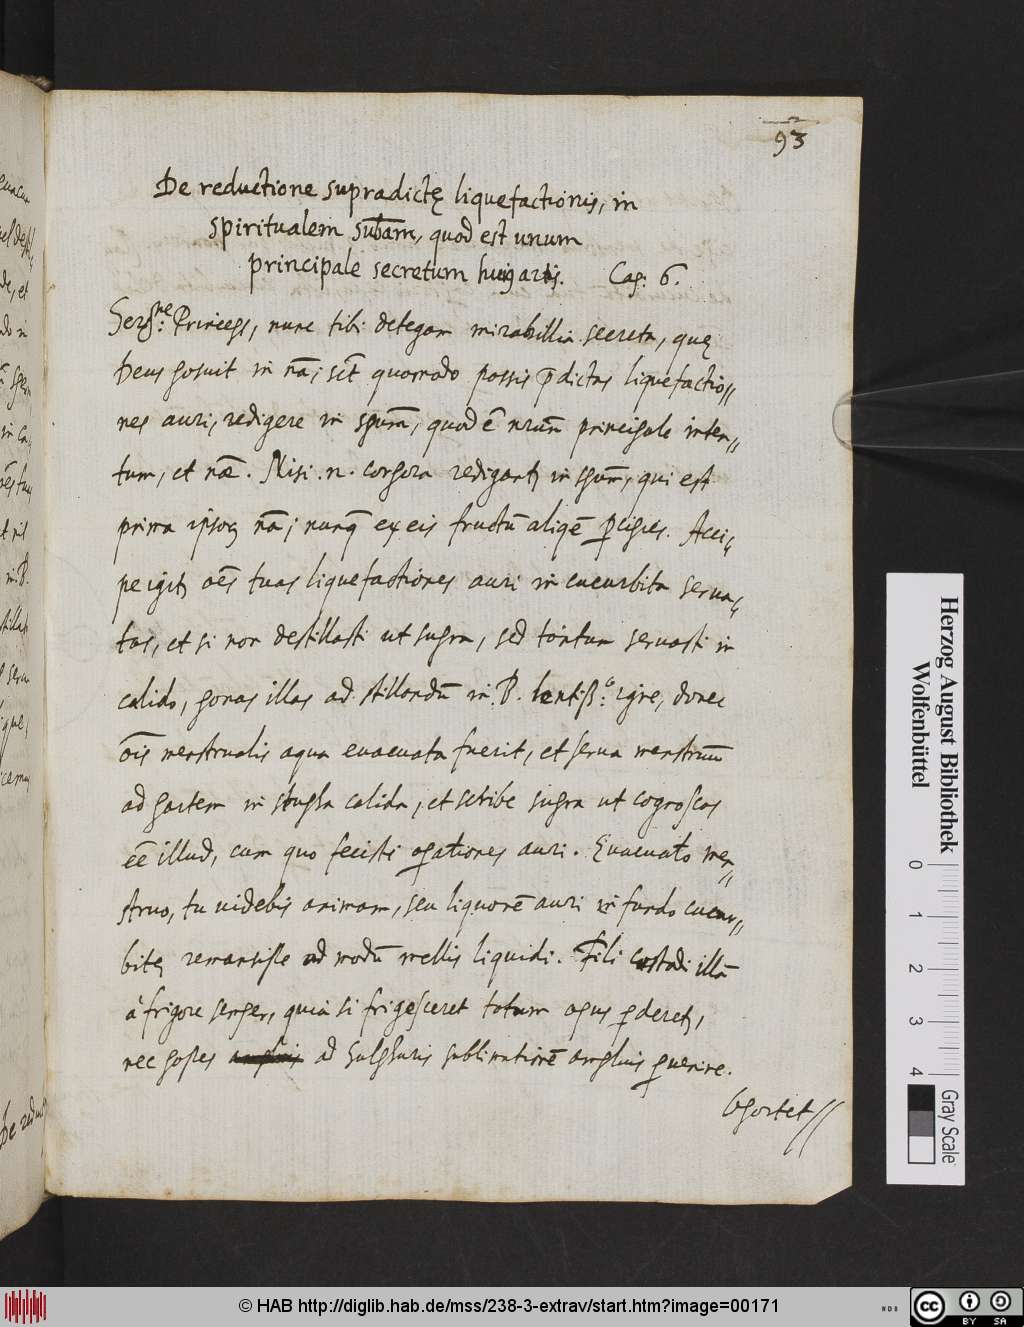 93
De reductione supradictę liquefactionis, in
spiritualem subãm, quod est unum
principale secretum huiꝰ artis. Cap: 6.
Serᵐᵉ: Princeps, nunc tibi detegam mirabillia secreta, quę
Deus posuit in nã; sc̃t quomodo possis p̃dictas liquefactio//
nes auri, redigere in spũm, quod ẽ nr̃um principale inten//
tum, et nõ. Nisi .n. corpora redigantꝛ in spũm, qui est
prima ipsoꝝ nã; nunq̃ ex eis fructũ aliqẽ ꝑcipies. Acci//
pe igitꝛ oẽs tuas liquefactiones auri in cucurbita serua//
tas, et si non destillasti ut supra, sed tantum seruasti in
calido, ponas illas ad stillandũ in .B. lentißᵒ: igne, donec
oĩs menstrualis aqua euacuata fuerit, et serua menstruũ
ad partem in stupha calida, et scribe supra ut cognoscas
eẽ illud, cum quo fecisti oꝑationes auri. Euacuato men//
struo, tu uidebis animam, seu liquorẽ auri in fundo cucur//
bitę remansisse ad modũ mellis liquidi. Fili custodi illã
à frigore semper, quia si frigesceret totum opus ꝑderetꝛ,
nec posses ad sulphuris sublimationẽ amplius ꝑuenire.
Oportet//
Herzog August Bibliothek
Wolfenbüttel
0 1 2 3 4
Gray Scale
© HAB http://diglib.hab.de/mss/238-3-extrav/start.htm?image=00171
NDB
cc BY SA